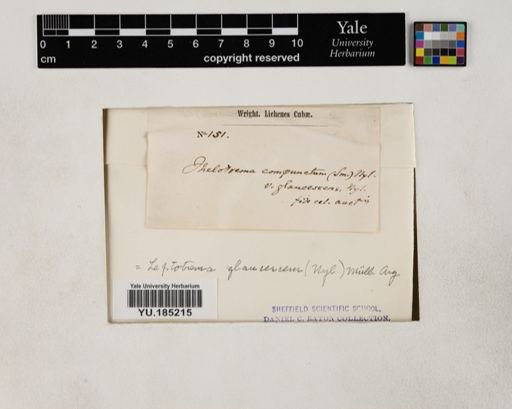 0 1 2 3 4 5 6 7 8 9 10
cm
copyright reserved
Yale
University
Herbarium
Wright. Lichenes Cubæ.
No 151.
Thelotrema compunctum (Sm.) Nyl.
v. glaucescens, Nyl.
fide cel. auct
= Leptotrema glaucescens (Nyl) Müll. Arg
Yale University Herbarium
YU.185215
SHEFFIELD SCIENTIFIC SCHOOL,
DANIEL C. EATON COLLECTION.